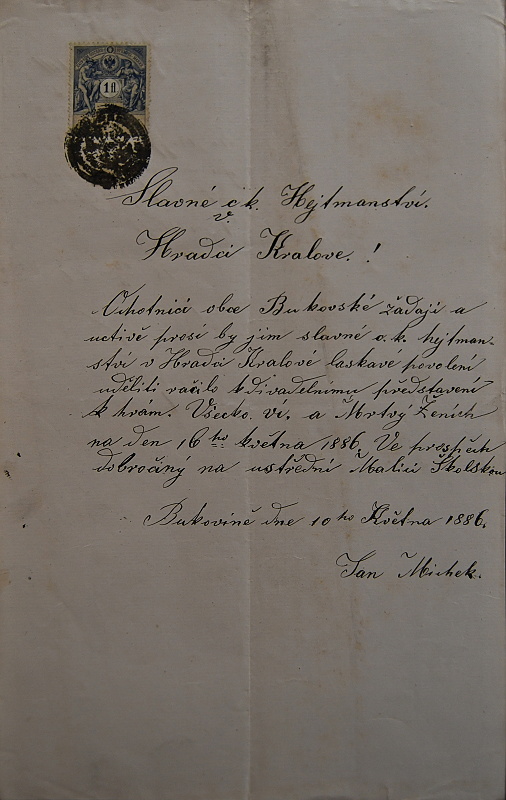 1 fl
Slavné c k. Hejtmanství.
v.
Hradci Kralove. !
Ochotníci obce Bukovské žádají a
uctivě prosí by jim slavné c. k. hejtman-
ství v Hradci Kralové laskavé povolení
uděliti račilo k divadelnímu představení
k hrám. Všecko. ví. a Mrtvý Ženich
na den 16 ho května 1886. Ve prospěch
dobročiný na ustřední Matici Školskou
Bukovině dne 10 ho Května 1886.
Jan Michek.